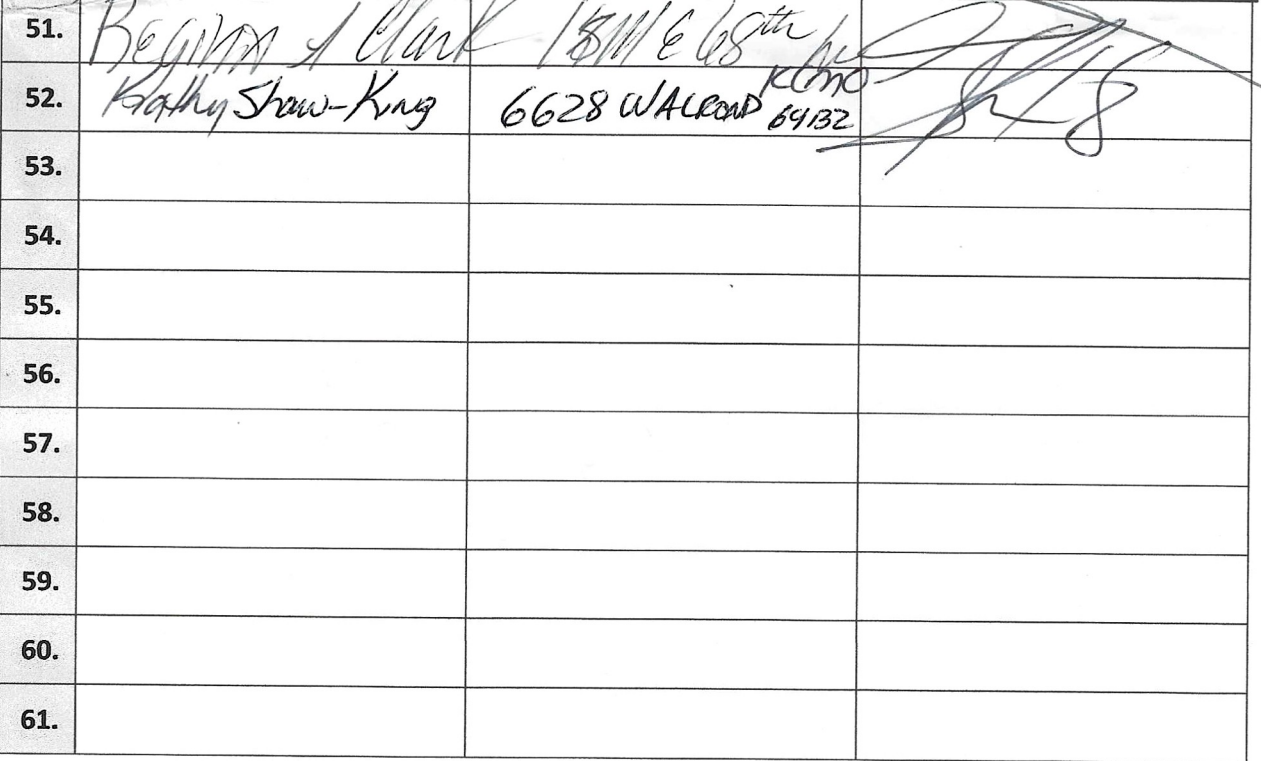 51. Clark E 68th
52. Kathy Shaw-King 6628 WALROND KCMO 64132
53.
54.
55.
56.
57.
58.
59.
60.
61.